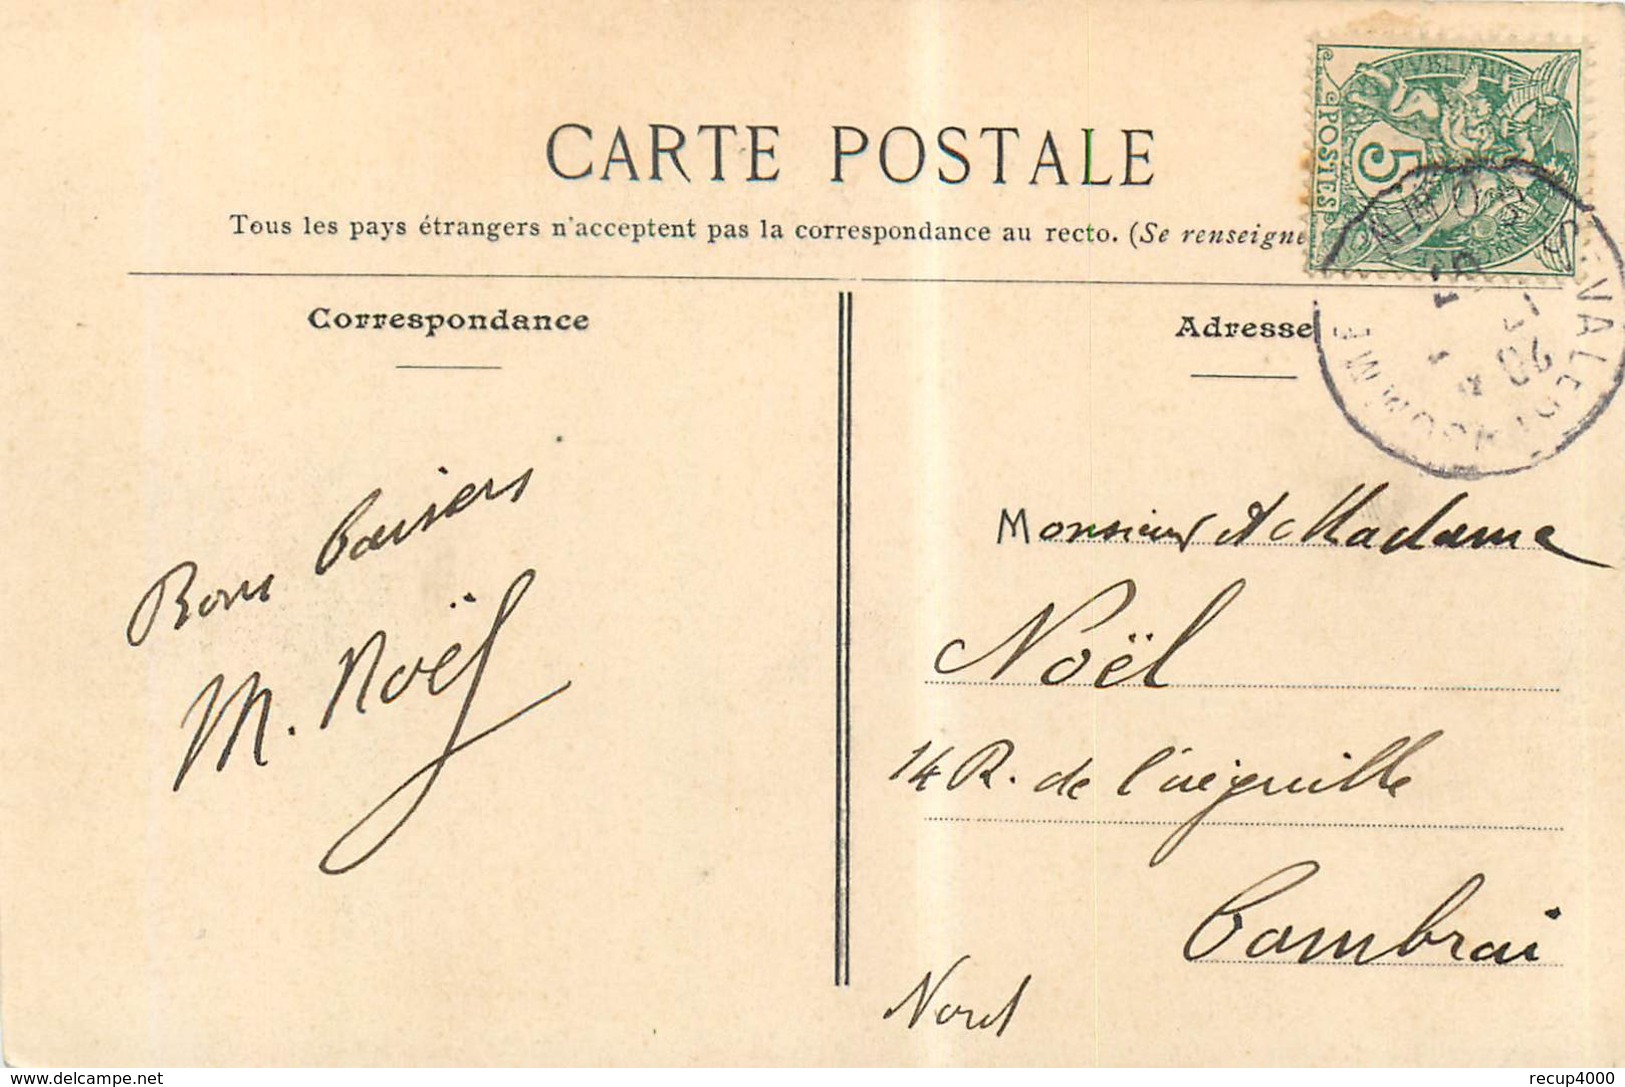 CARTE POSTALE
Tous les pays étrangers n'acceptent pas la correspondance au recto. (Se renseigne
Correspondance
Adresse
RÉPUBLIQUE
POSTES
5
SOMME
20
Bons baisers
M. Noël
Monsieur et Madame
Noël
14 R. de l'aiguille
Cambrai
Nord
www.delcampe.net
recup4000